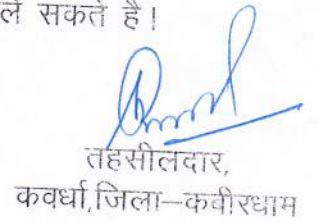 ले सकते है!
तहसीलदार,
कवर्धा,जिला—कबीरधाम